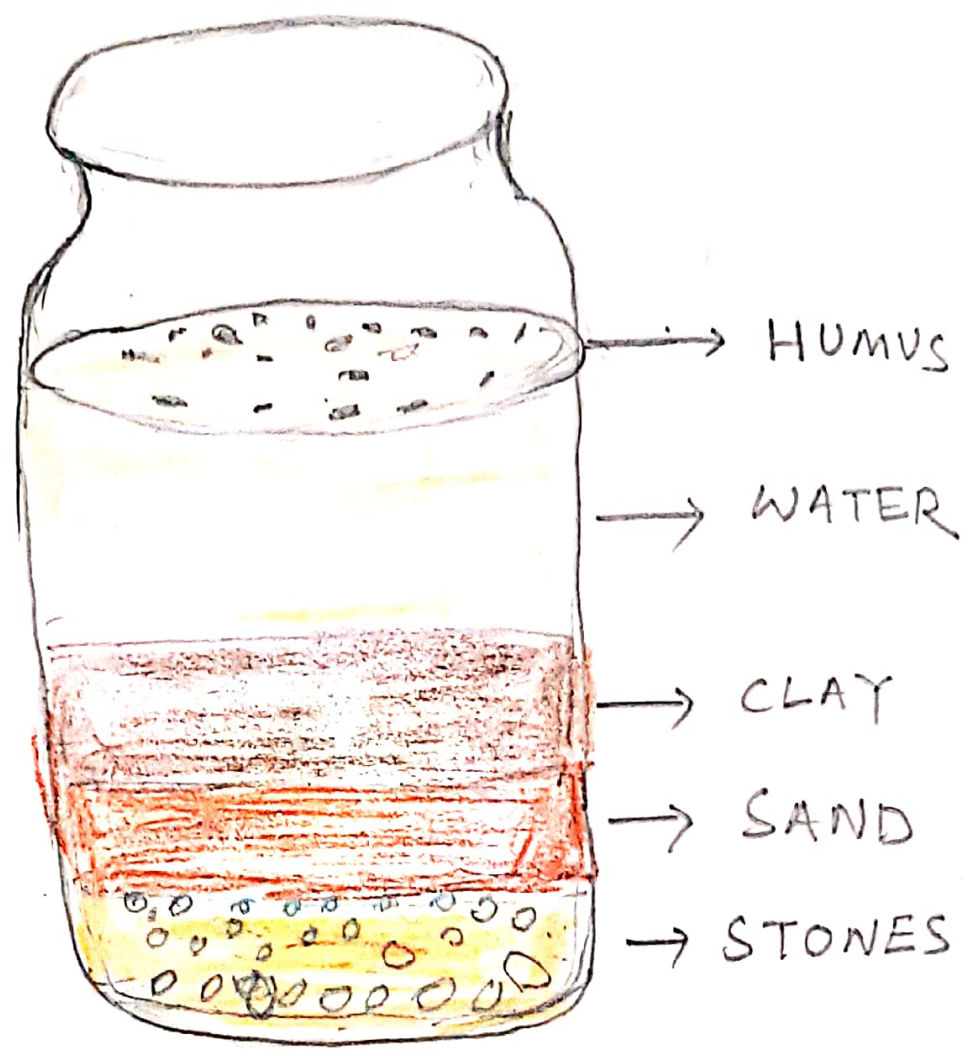 HUMUS
WATER
CLAY
SAND
STONES